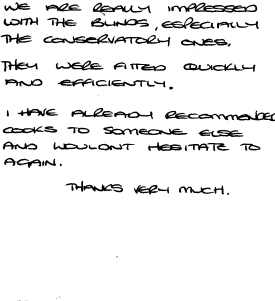 WE ARE REALLY IMPRESSED
WITH THE BLINDS, ESPECIALLY
THE CONSERVATORY ONES.
THEY WERE FITTED QUICKLY
AND EFFICIENTLY.
I HAVE ALREADY RECOMMENDED
COOKS TO SOMEONE ELSE
AND WOULDNT HESITATE TO
AGAIN.
THANKS VERY MUCH.